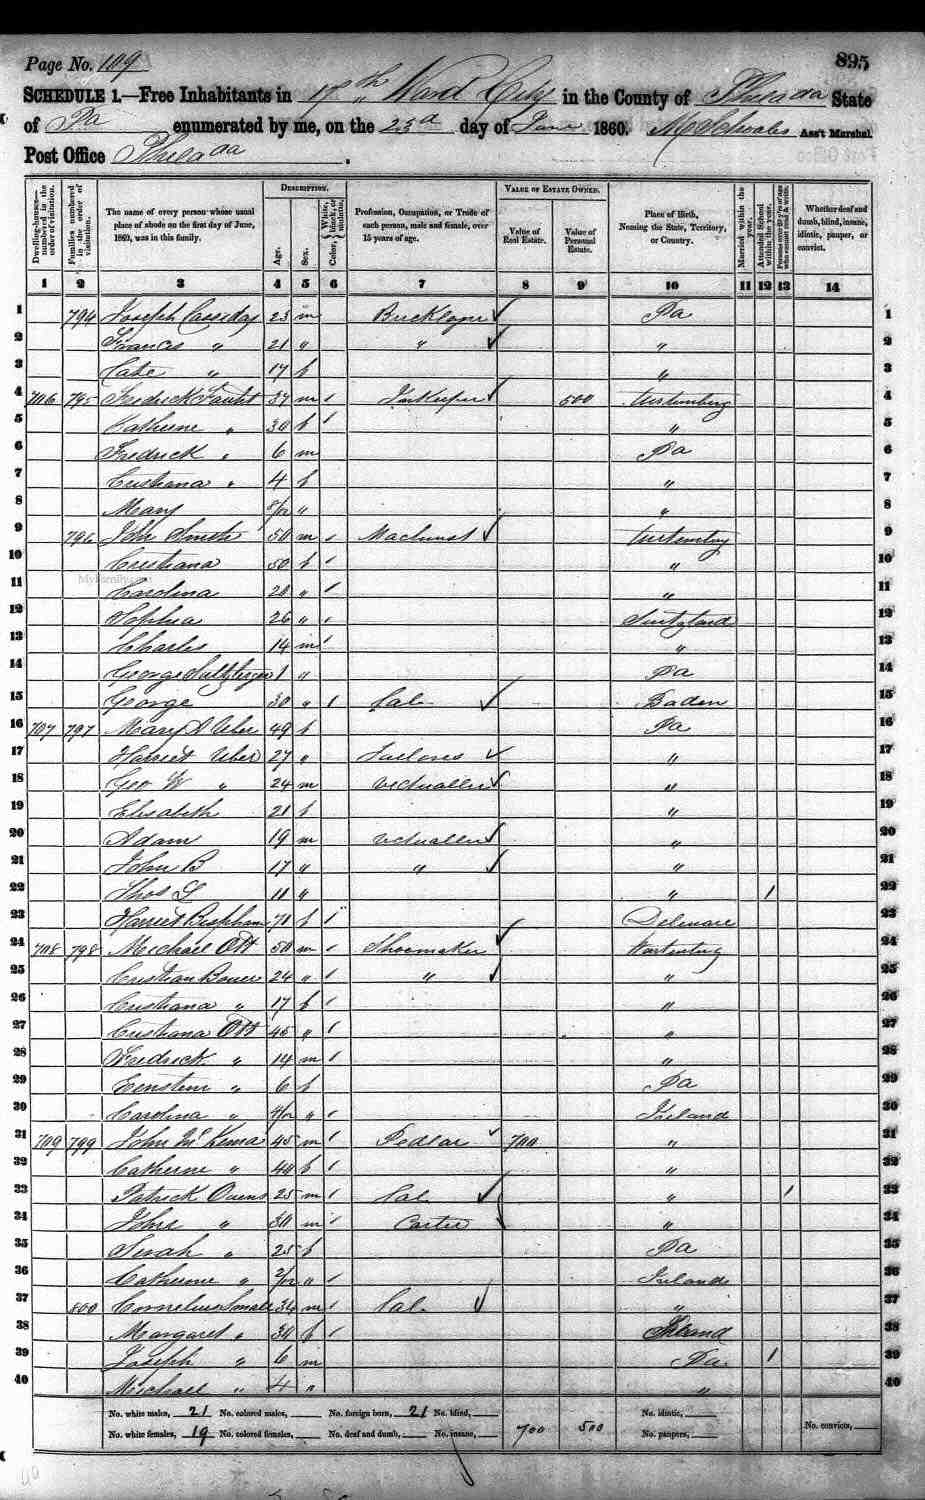 Page No. 109
895
SCHEDULE 1.—Free Inhabitants in 17th Ward City in the County of Philada State
of Pa enumerated by me, on the 23d day of June 1860. Ass't Marshal.
Post Office Philada.
Dwelling-houses—numbered in the order of visitation. Families numbered in the order of visitation. The name of every person whose usual place of abode on the first day of June, 1860, was in this family. DESCRIPTION. Age. Sex. Color, White, black, or mulatto. Profession, Occupation, or Trade of each person, male and female, over 15 years of age. VALUE OF ESTATE OWNED. Value of Real Estate. Value of Personal Estate. Place of Birth, Naming the State, Territory, or Country. Married within the year. Attended School within the year. Persons over 20 y'rs of age who cannot read & write. Whether deaf and dumb, blind, insane, idiotic, pauper, or convict.
1 2 3 4 5 6 7 8 9 10 11 12 13 14
1 794 Joseph Cassiday 23 m Bricklayer Pa 1
2 Francis " 21 " " " 2
3 Cate " 17 f " 3
4 706 795 Fredrick Faubt 37 m Innkeeper 500 Wurtemburg 4
5 Catherine " 30 f " 5
6 Fredrick " 6 m Pa 6
7 Cristiana " 4 f " 7
8 Mary 8/12 " " 8
9 796 John Smith 50 m Machinest Wurtemburg 9
10 Cristiana 50 f " 10
11 Carolina 20 " " 11
MyFamily.com
12 Sophia 26 " Switzland 12
13 Charles 14 m " 13
14 George Sultzberger 1 " Pa 14
15 George 30 " Lab. Baden 15
16 707 797 Mary A Uber 49 f Pa 16
17 Harriet Uber 27 " Tailores " 17
18 Geo W " 24 m Victualler " 18
19 Elisabeth 21 f " 19
20 Adam 19 m Victualler " 20
21 John B 17 " " " 21
22 Thos S 11 " " 1 22
23 Harriet Bispham 71 f Delware 23
24 708 798 Michael Ott 50 m Shoemaker Wurtemburg 24
25 Cristian Bauer 24 " " " 25
26 Cristiana " 17 f " 26
27 Cristiana Ott 45 " " 27
28 Fredrick " 14 m " 28
29 " 6 f Pa 29
30 Carolina " " Ireland 30
31 709 799 John McKema 45 m Pedlar 700 " 31
32 Catherine " 40 f " 32
33 Patrick Owens 25 m Lab. " 1 33
34 John " 30 m Carter " 34
35 Serah " 25 f Pa 35
36 Catherine " 2/12 " Ireland 36
37 800 Cornelius Small 34 m Lab. " 37
38 Margaret " 30 f Ireland 38
39 Joseph " 6 m Pa. 1 39
40 Michael " 4 " " 40
No. white males, 21 No. colored males, No. foreign born, 21 No. blind, 700 500 No. idiotic, No. convicts,
No. white females, 19 No. colored females, No. deaf and dumb, No. insane, No. paupers,